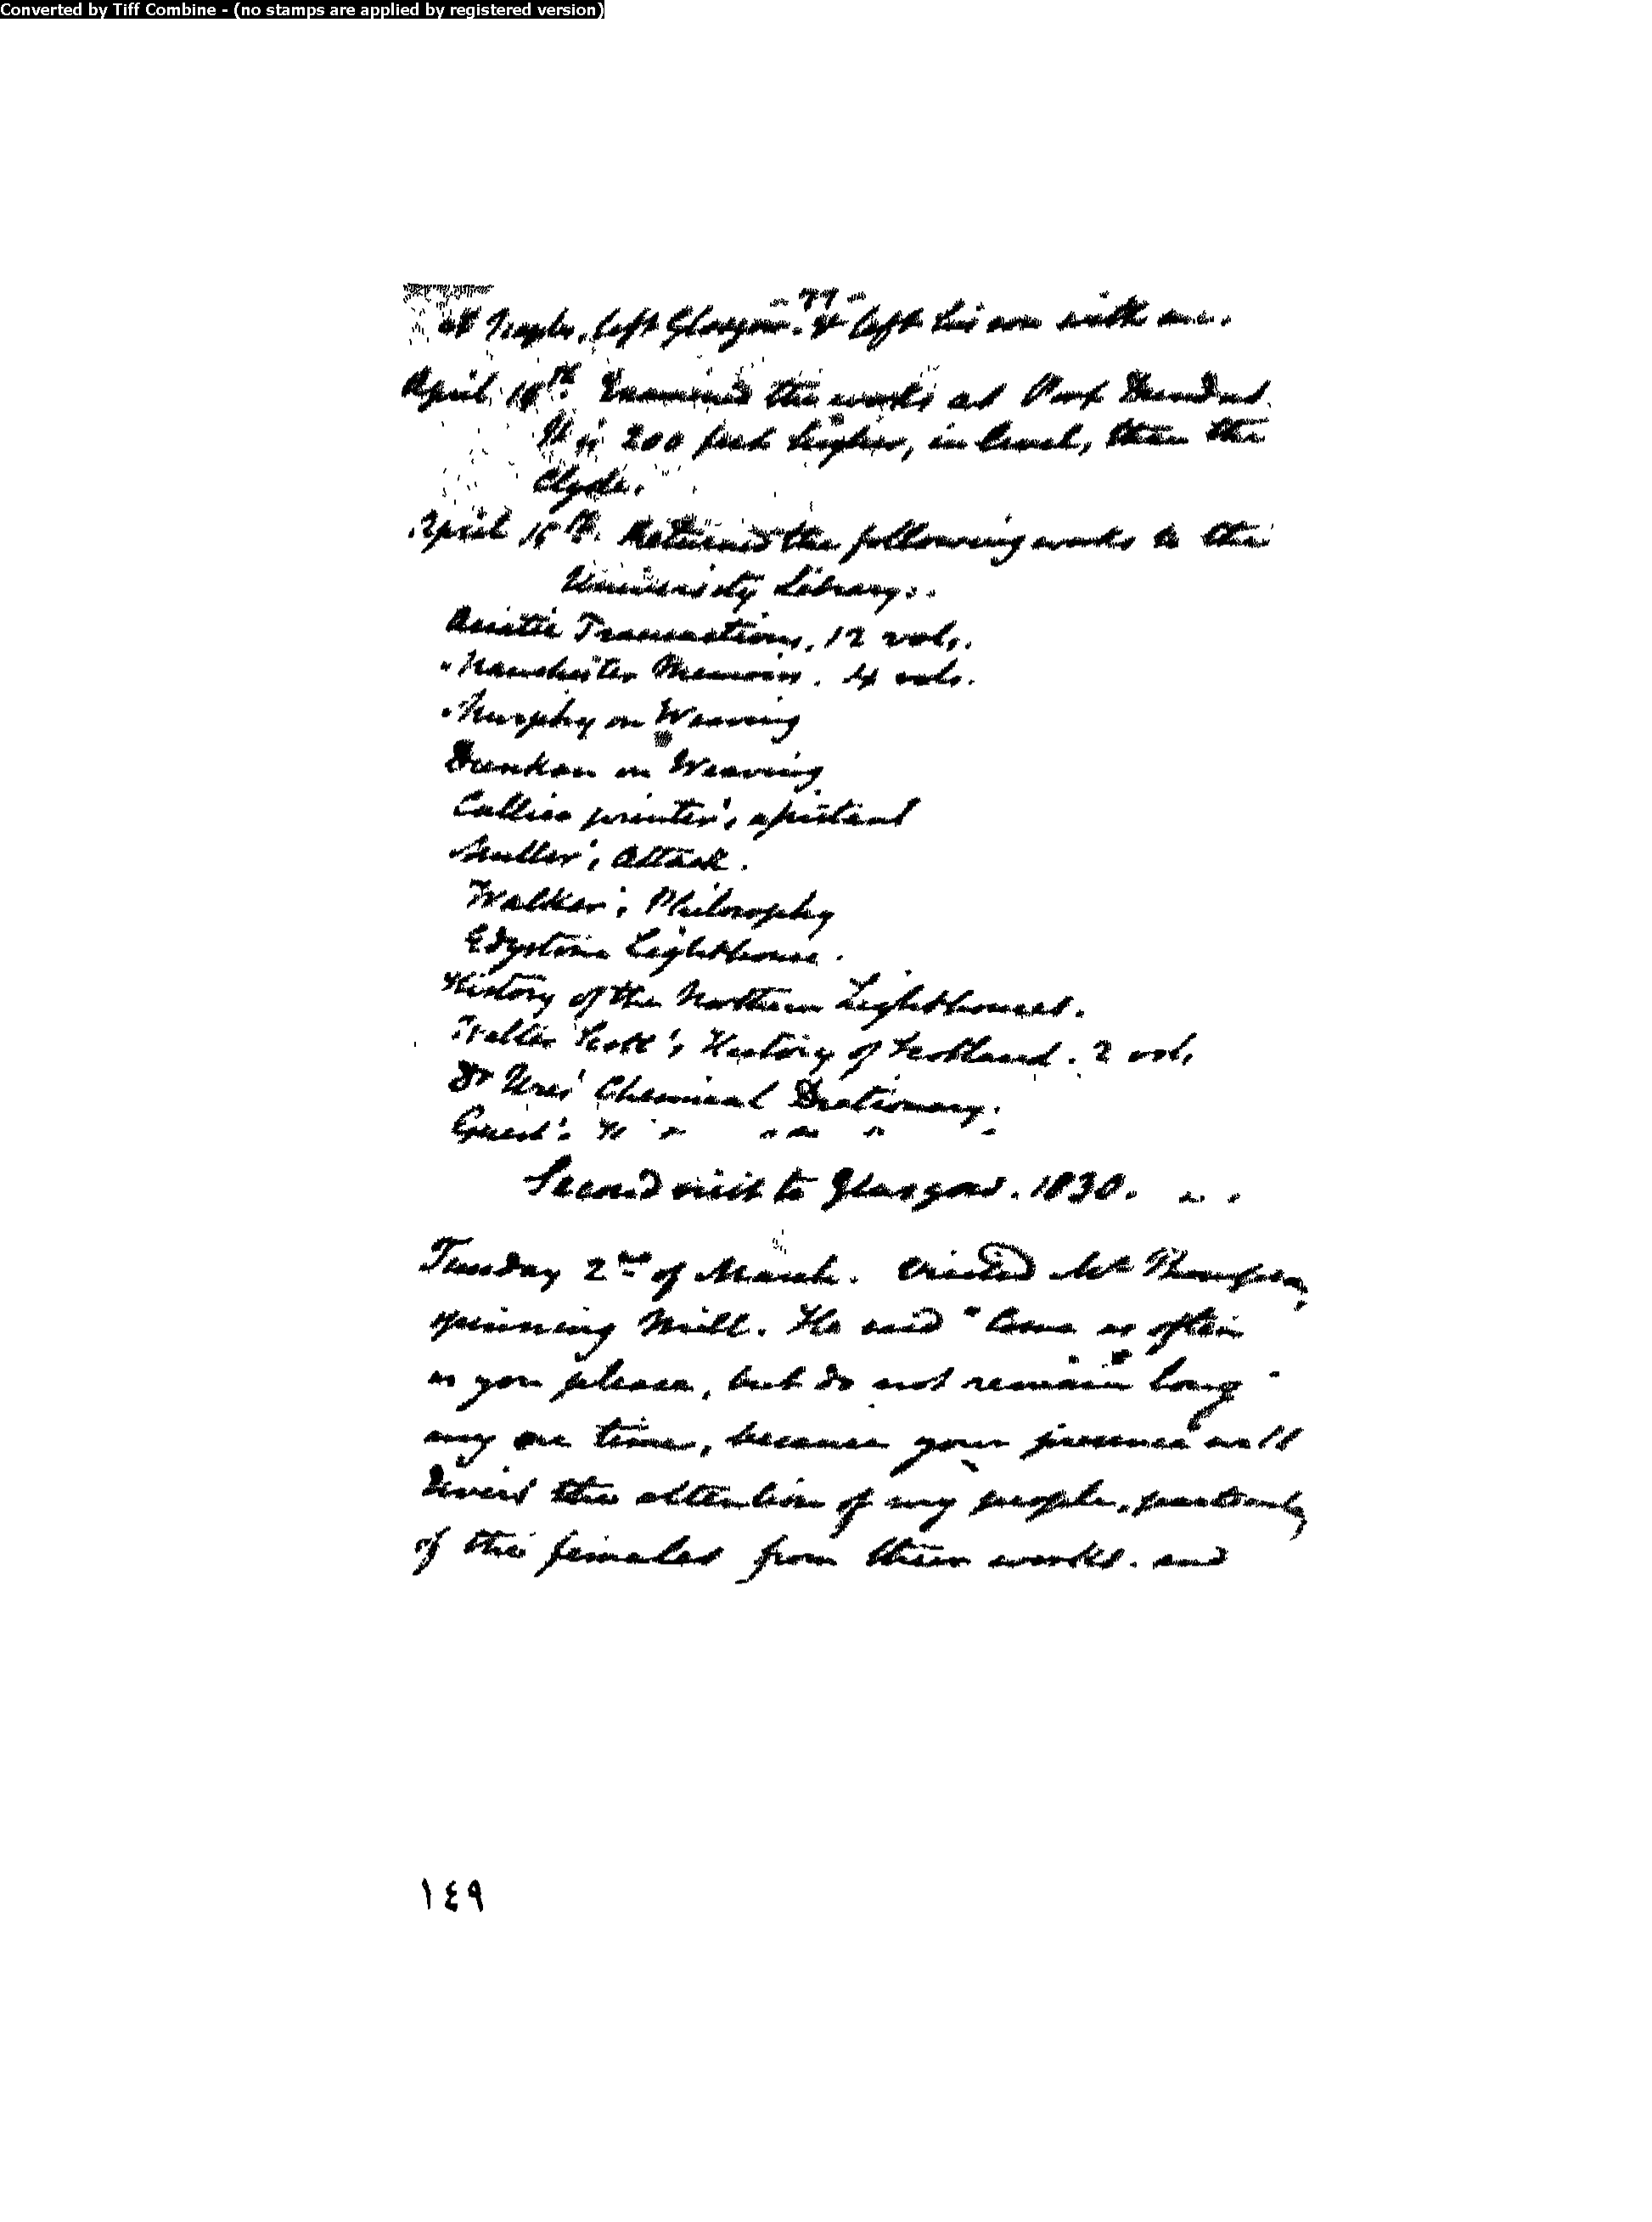 Converted by Tiff Combine - (no stamps are applied by registered version)
- 77 -
at Naples, left Glasgow. & left his son with me.
April 10th. Examined the works at Port Dundas.
It is 200 feet higher, in level, than the
Clyde.
April 15th. Returned the following works to the
University Library:.
Asiatic Transactions, 12 vols.
Manchester Memoirs. 4 vols.
Murphy on Weaving
Dunkan on Weaving
Callico printer's assistant
Muller's Attack.
Walker's Philosophy
Edystone Lighthouse.
History of the Northern Lighthouses.
Walter Scott's History of Scotland. 2 vols
Dr Ures' Chemical Dictionary.
Guest's
Second visit to Glasgow. 1830.
Tuesday 2nd of March. Visited Mr Thompson,
spinning Mill. He said "Come as often
as you please, but do not remain long
any one time, because your presence will
the attention of my people, particularly
of the females from their works. and
١٤٩